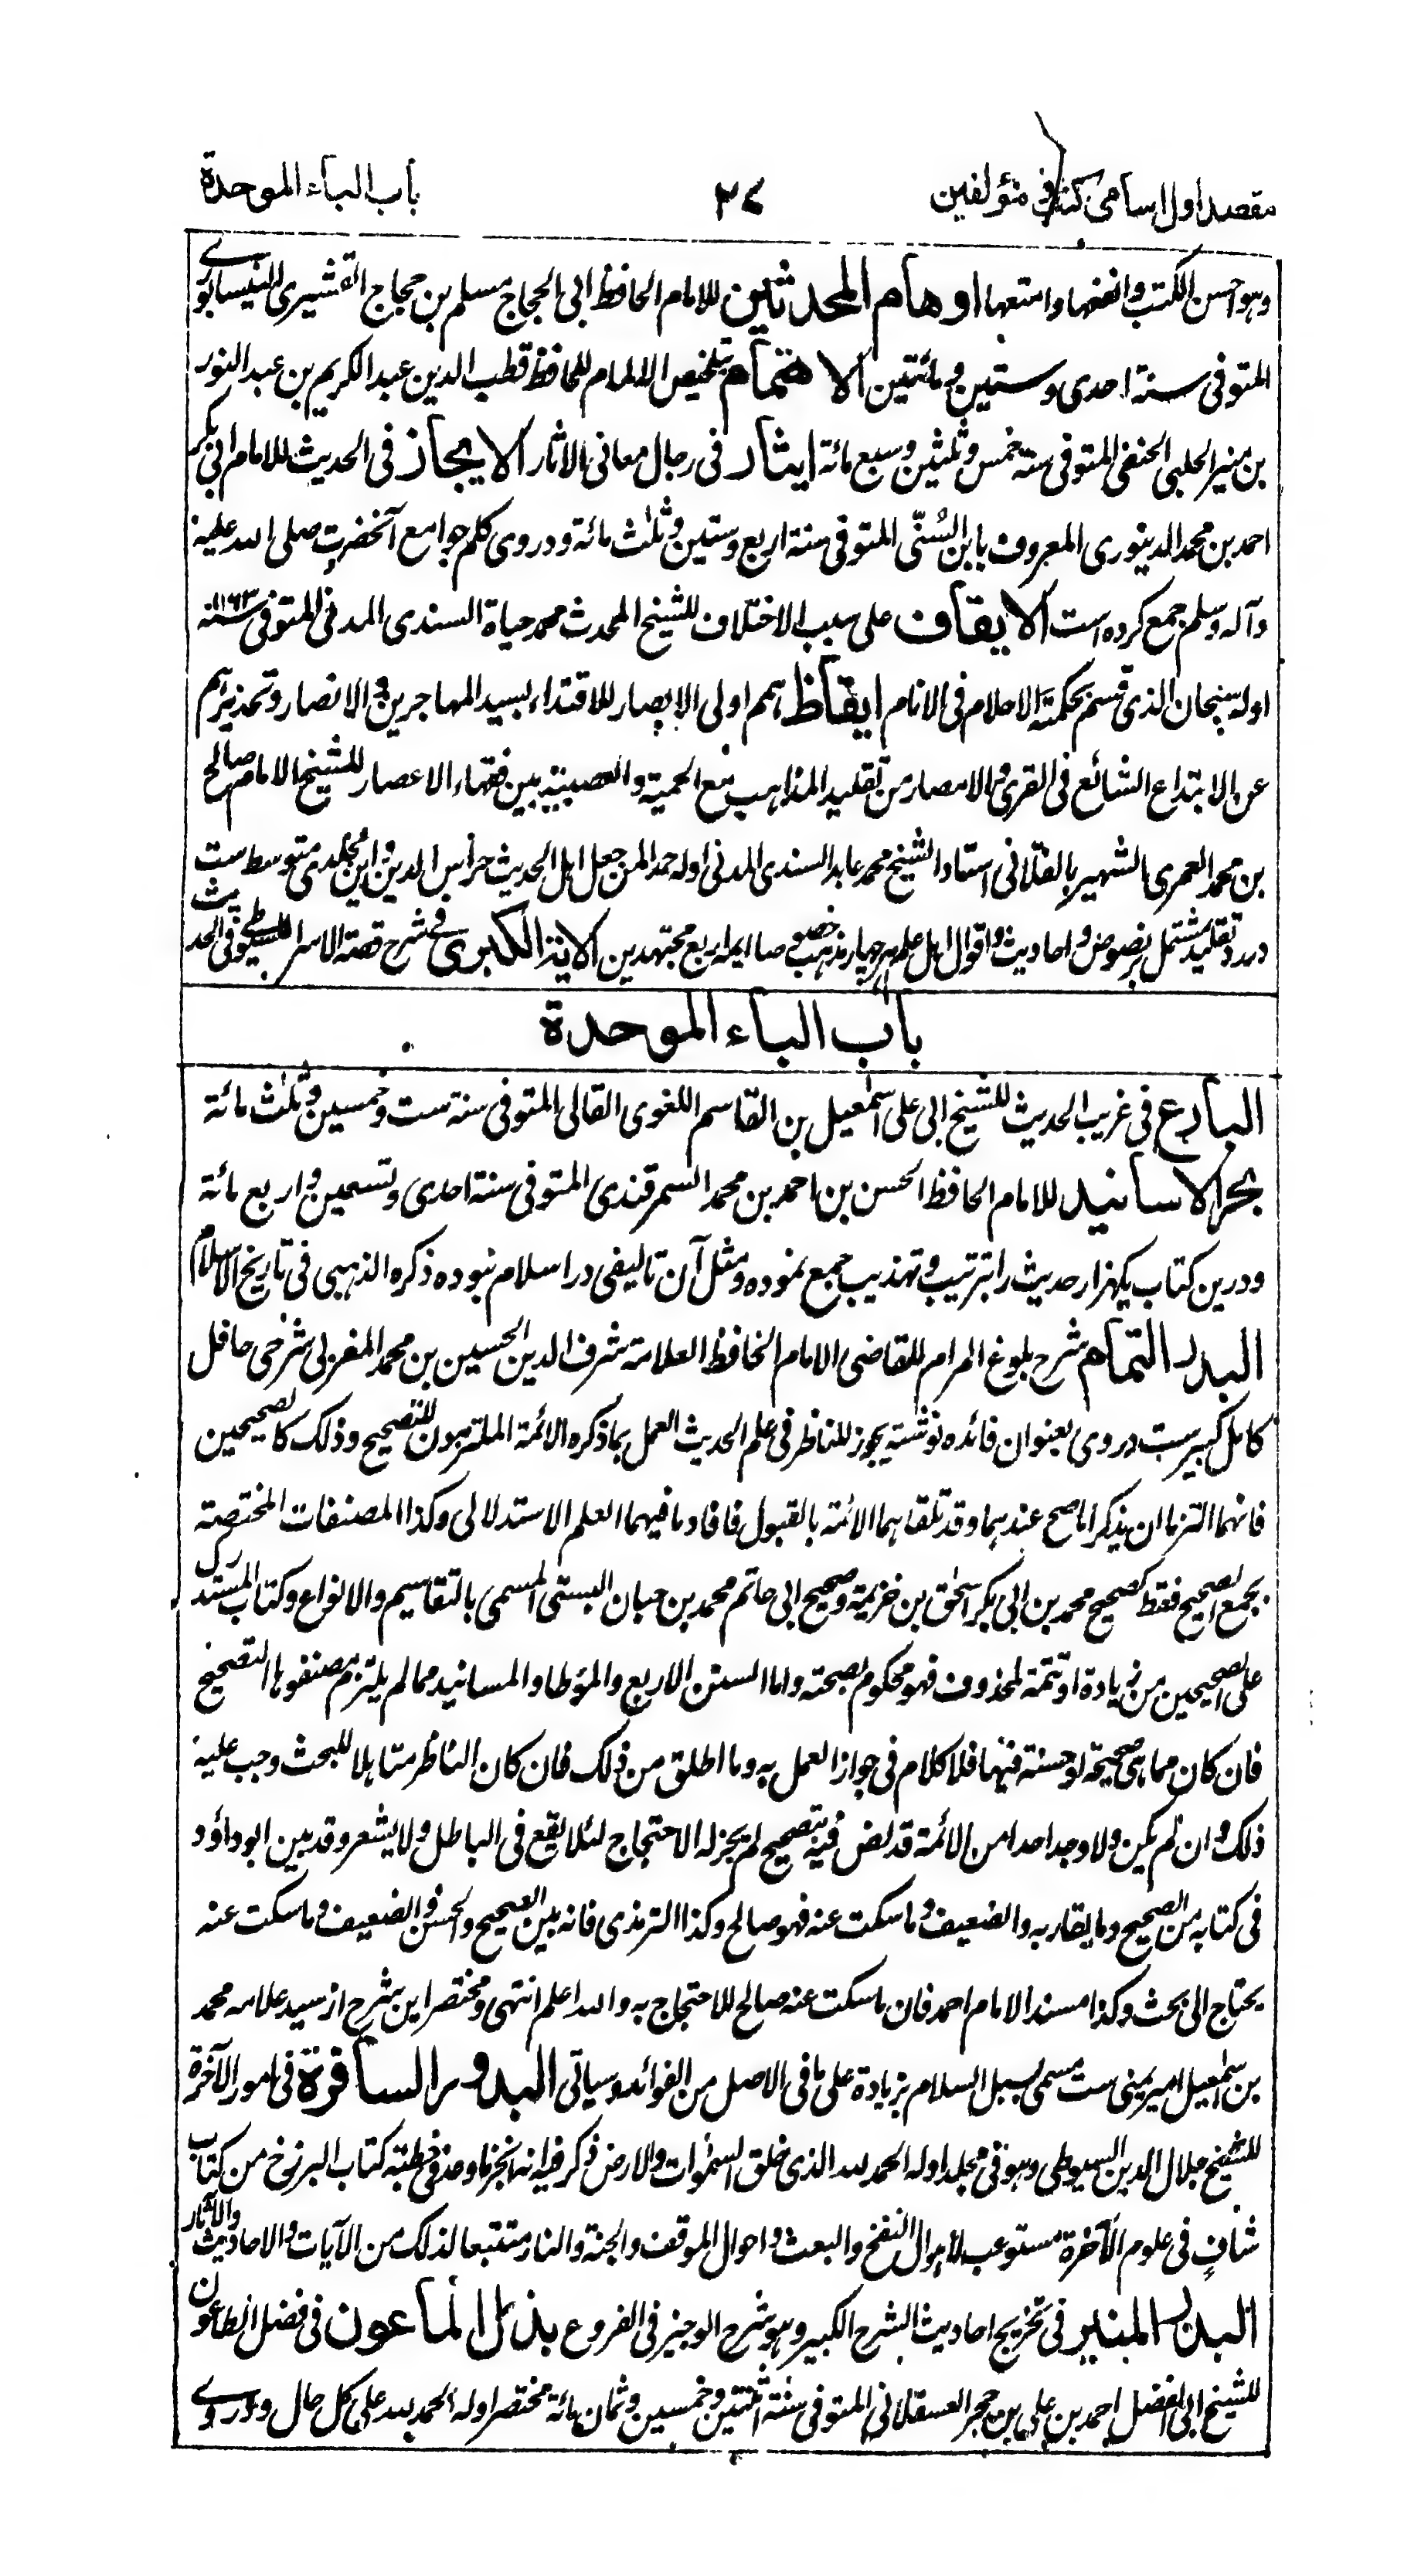 مقصد اول اسامی کتب فی مؤلفین
۲۷
باب الباء الموحدة
وهو احسن الکتب وانفعها وامتعها اوهام المحدثین للامام الحافظ ابی الحجاج مسلم بن حجاج القشیری النیسابوری
المتوفی سنة احدی وستین ومائتین الاهتمام تلخیص الالمام للحافظ قطب الدین عبد الکریم بن عبد النور
بن منیر الحلبی الحنفی المتوفی سنة خمس وثلثین وسبع مائة ایثار فی رجال معانی الاثار الایجاز فی الحدیث للامام ابی بکر
احمد بن محمد الدینوری المعروف بابن السُنّی المتوفی سنة اربع وستین وثلٰث مائة ودر وی کلم جوامع آنحضرت صلی الله علیه
وآله وسلم جمع کرده است الایقاف علی سبب الاختلاف للشیخ المحدث محمد حیاة السندی المدنی المتوفی سنة ۱۱۶۳
اوله سبحان الذی قسم بحکمته الاحلام فی الانام ایقاظ همم اولی الابصار للاقتداء بسید المهاجرین والانصار وتحذیرهم
عن الابتداع الشائع فی القری والامصار من تقلید المذاهب مع الحمیة والعصبیة بین فقهاء الاعصار للشیخ الامام صالح
بن محمد العمری الشهیر بالفلانی استاد الشیخ محمد عابد السندی المدنی اوله حمدا لمن جعل اهل الحدیث حراس الدین واین مجلدی متوسط ست
در رد تقلید مشتمل بر نصوص واحادیث واقوال اهل علم هر چهار مذهب خصوصا ایمه اربع مجتهدین الآیة الکبری فی شرح قصة الاسرا للسیوطی فی الحدیث
باب الباء الموحدة
البارع فی غریب الحدیث للشیخ ابی علی اسمٰعیل بن القاسم اللغوی القالی المتوفی سنة ست وخمسین وثلٰث مائة
بحر الاسانید للامام الحافظ الحسن بن احمد بن محمد السمرقندی المتوفی سنة احدی وتسعین واربع مائة
ودرین کتاب یکهزار حدیث را بترتیب وتهذیب جمع نموده ومثل آن تالیفی در اسلام نبوده ذکره الذهبی فی تاریخ الاسلام
البدر التمام شرح بلوغ المرام للقاضی الامام الحافظ العلامة شرف الدین الحسین بن محمد المغربی شرحی حافل
کامل کبیر ست در وی بعنوان فائده نوشته یجوز للناظر فی علم الحدیث العمل بما ذکره الائمة الملتزمون للتصحیح وذلک کالصحیحین
فانهما التزما ان یذکرا ما صح عندهما وقد تلقاهما الائمة بالقبول فافاد ما فیهما العلم الاستدلالی وکذا المصنفات المختصة
بجمع الصحیح فقط کصحیح محمد بن ابی بکر اسحٰق بن خزیمة وصحیح ابی حاتم محمد بن حبان البستی المسمی بالتقاسیم والانواع وکتاب المستدرک
علی الصحیحین من زیادة او تتمة لمحذوف فهو محکوم بصحته واما السنن الاربع والمؤطا والمسانید مما لم یلتزم مصنفوها التصحیح
فان کان مما هی صحیحة او حسنة فیها فلا کلام فی جواز العمل به وما اطلق من ذلک فان کان الناظر متاهلا للبحث وجب علیه
ذلک وان لم یکن ولا وجد احدا من الائمة قد نص فیه بتصحیح لم یجز له الاحتجاج لئلا یقع فی الباطل ولا یشعر وقد بین ابو داؤد
فی کتابه من الصحیح وما یقاربه والضعیف وما سکت عنه فهو صالح وکذا الترمذی فانه بین الصحیح والحسن والضعیف وما سکت عنه
یحتاج الی بحث وکذا مسند الامام احمد فان ما سکت عنه صالح للاحتجاج به والله اعلم انتهی ومختصر این شرح از سید علامه محمد
بن اسمٰعیل امیر یمنی ست مسمی بسبل السلام بزیادة علی ما فی الاصل من الفوائد وسیاتی البدور السافرة فی امور الآخرة
للشیخ جلال الدین السیوطی وهو فی مجلد اوله الحمد لله الذی خلق السمٰوات والارض ذکر فیه انه انجز ما وعد فی خطبته کتاب البرزخ من کتاب
شافٍ فی علوم الآخرة مستوعب لاهوال النفخ والبعث واحوال الموقف والجنة والنار متتبعا لذلک من الآیات والاحادیث والآثار
البدر المنیر فی تخریج احادیث الشرح الکبیر وهو شرح الوجیز فی الفروع بذل الماعون فی فضل الطاعون
للشیخ ابی الفضل احمد بن علی بن حجر العسقلانی المتوفی سنة اثنتین وخمسین وثمان مائة مختصر اوله الحمد لله علی کل حال ودر وی